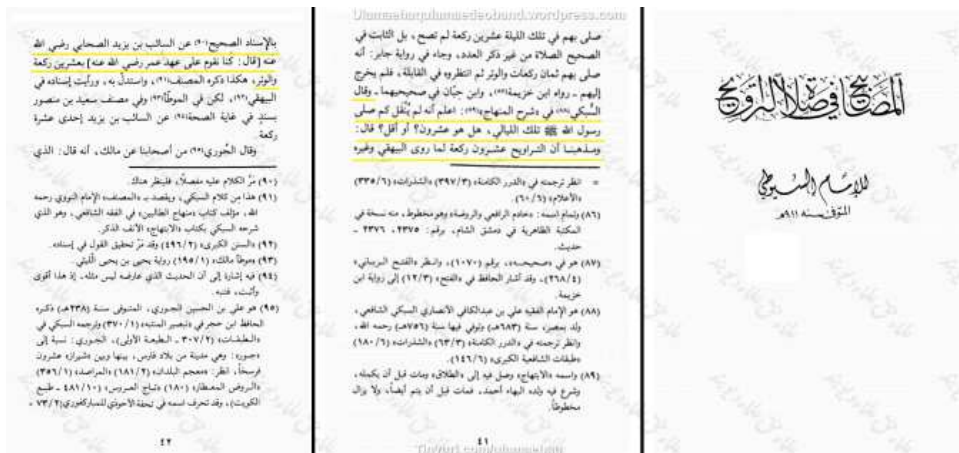 المصابيح في صلاة التراويح
للإمام السيوطي
المتوفى سنة ٩١١هـ
Ulamaehaqulamaedeoband.wordpress.com
صلى بهم في تلك الليلة عشرين ركعة لم تصح، بل الثابت في
الصحيح الصلاة من غير ذكر العدد، وجاء في رواية جابر: أنه
صلى بهم ثمان ركعات والوتر ثم انتظروه في القابلة، فلم يخرج
إليهم - رواه ابن خزيمة(٨٧)، وابن حِبّان في صحيحيهما - وقال
السُّبكي(٨٨) في «شرح المنهاج»(٨٩): اعلم أنه لم يُنْقَل كم صلى
رسول الله ﷺ تلك الليالي، هل هو عشرون؟ أو أقل؟ قال:
ومذهبنا أن التراويح عشرون ركعة لما روى البيهقي وغيره
= انظر ترجمته في «الدرر الكامنة» (٣٩٧/٣) «الشذرات» (٣٣٥/٦)
«الأعلام» (٦٠/٦).
(٨٦) وتمام اسمه: «خادم الرافعي والروضة» وهو مخطوط، منه نسخة في
المكتبة الظاهرية في دمشق الشام، برقم: ٢٣٧٥، ٢٣٧٦ -
حديث.
(٨٧) هو في «صحيحه»، برقم (١٠٧٠)، وانظر «الفتح الرباني»
(٢٦٨/٤)، وقد أشار الحافظ في «الفتح» (١٢/٣) إلى رواية ابن
خزيمة.
(٨٨) هو الإمام الفقيه علي بن عبدالكافي الأنصاري السبكي الشافعي،
ولد بمصر، سنة (٦٨٣هـ) وتوفي فيها سنة (٧٥٦هـ) رحمه الله،
وانظر ترجمته في «الدرر الكامنة» (٦٣/٣) «الشذرات» (١٨٠/٦)
«طبقات الشافعية الكبرى» (١٤٦/٦).
(٨٩) واسمه «الابتهاج» وصل فيه إلى «الطلاق» ومات قبل أن يكمله،
وشرع فيه ولده البهاء أحمد، فمات قبل أن يتم أيضاً، ولا يزال
مخطوطاً.
٤١
بالإسناد الصحيح(٩٠) عن السائب بن يزيد الصحابي رضي الله
عنه [قال: كنا نقوم على عهد عمر رضي الله عنه] بعشرين ركعة
والوتر، هكذا ذكره المصنف(٩١)، واستدل به، ورأيت إسناده في
البيهقي(٩٢)، لكن في الموطأ(٩٣) وفي مصنف سعيد بن منصور
بسندٍ في غاية الصحة(٩٤) عن السائب بن يزيد إحدى عشرة
ركعة.
وقال الجُوري(٩٥) من أصحابنا عن مالك، أنه قال: الذي
(٩٠) مَرَّ الكلام عليه مفصلاً، فلينظر هناك.
(٩١) هذا من كلام السبكي، ويقصد بـ «المصنف» الإمام النووي رحمه
الله، مؤلف كتاب «منهاج الطالبين» في الفقه الشافعي، وهو الذي
شرحه السبكي بكتاب «الابتهاج» الآنف الذكر.
(٩٢) «السنن الكبرى» (٤٩٦/٢) وقد مَرَّ تحقيق القول في إسناده.
(٩٣) «موطأ مالك» (١٩٥/١) رواية يحيى بن يحيى الليثي.
(٩٤) فيه إشارة إلى أن الحديث الذي عارضه ليس مثله، إذ هذا أقوى
وأثبت، فتنبه.
(٩٥) هو علي بن الحسين الجوري، المتوفى سنة (٢٣٨هـ) ذكره
الحافظ ابن حجر في «تبصير المنتبه» (٣٧٠/١) وترجمه السبكي في
«الطبقات» (٣٠٧/٢ - الطبعة الأولى)، الجوري: نسبة إلى
«جور»: وهي مدينة من بلاد فارس، بينها وبين «شيراز» عشرون
فرسخاً، انظر: «معجم البلدان» (١٨١/٢) «المراصد» (٣٥٦/١)
«الروض المعطار» (١٨٠) «تاج العروس» (٤٨١/١٠ - طبع
الكويت)، وقد تحرف اسمه في تحفة الأحوذي للمباركفوري (٧٣/٢ =
٤٢